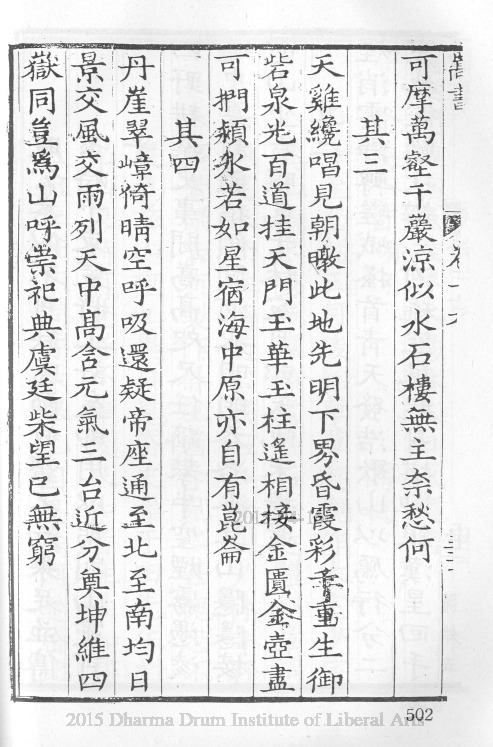 嵩書
卷十六
可摩萬壑千巖涼似水石樓無主奈愁何
其三
天雞纔唱見朝暾此地先明下界昏霞彩重生御
砦泉光百道挂天門玉華玉柱遙相接金匱金壺盡
可捫潁水若如星宿海中原亦自有崑崙
其四
丹崖翠嶂倚晴空呼吸還疑帝座通至北至南均日
景交風交雨列天中高含元氣三台近分奠坤維四
嶽同豈爲山呼崇祀典虞廷柴望已無窮
502
2015 Dharma Drum Institute of Liberal Arts